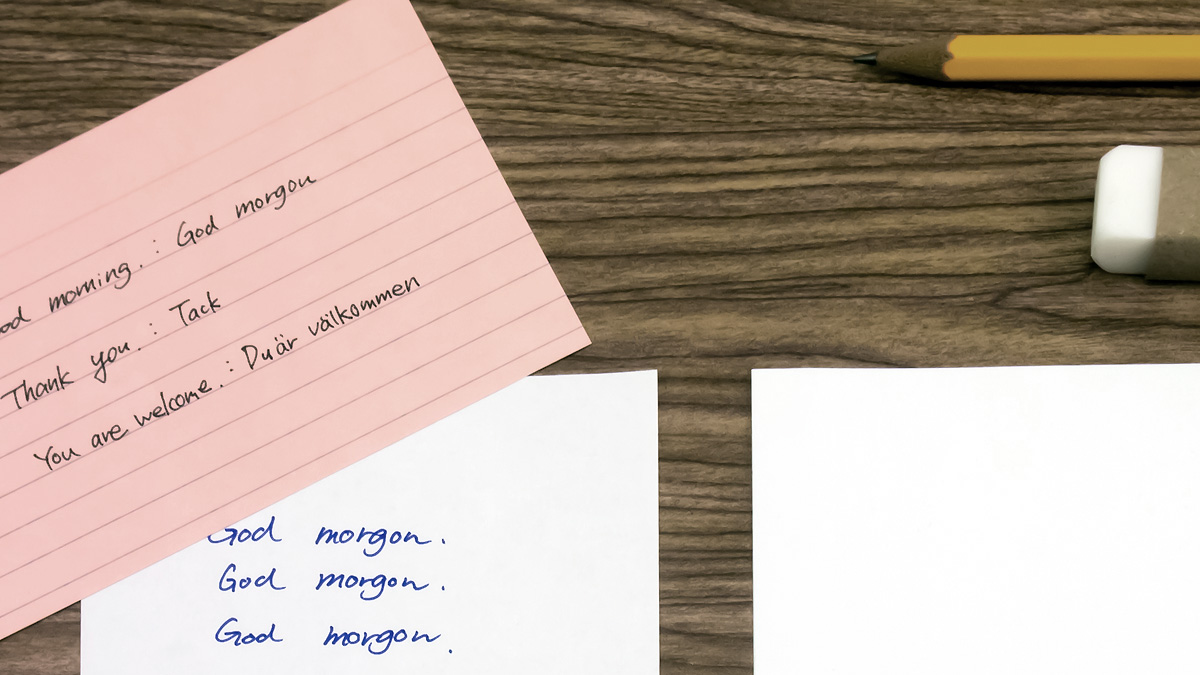 od morning. : God morgon
Thank you. : Tack
You are welcome. : Du är välkommen
God morgon.
God morgon.
God morgon.